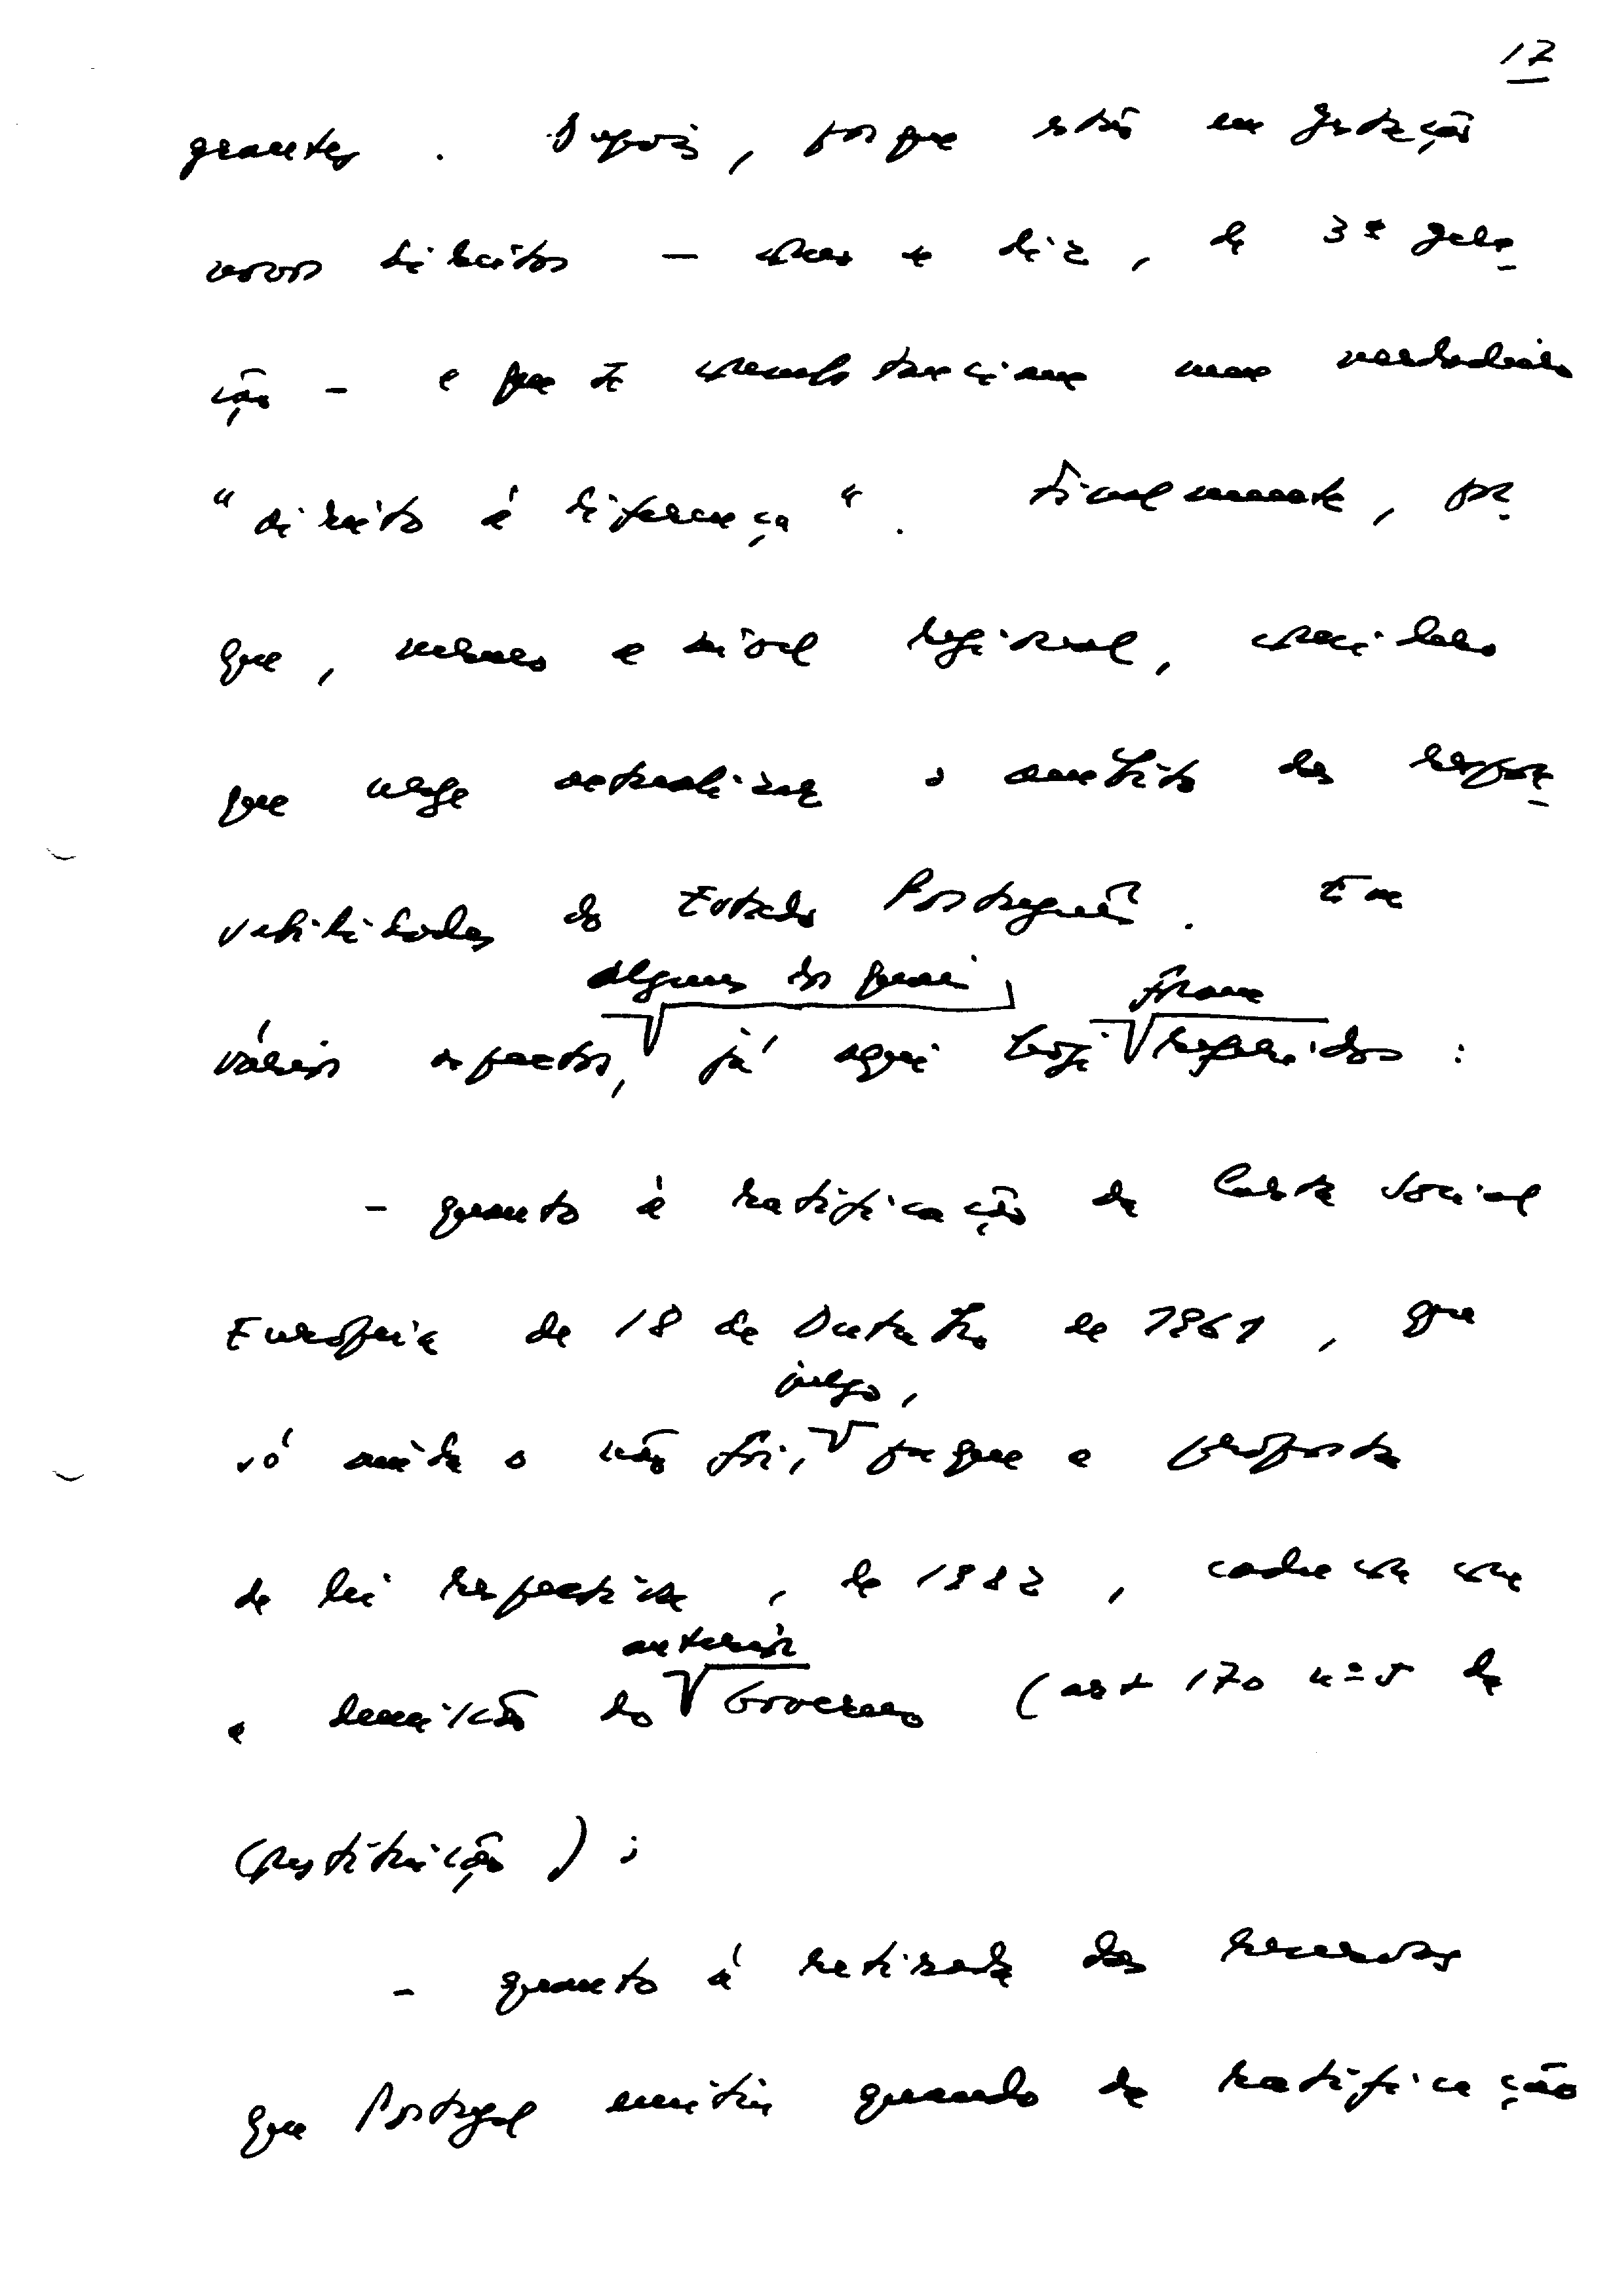 12
grantes. Depois, porque estão em gestação
novos direitos — como se diz, de 3ª gera
ção — e que se consubstanciam num verdadeiro
"direito à diferença". Finalmente, por
que, mesmo a nível regional,
que urge actualizar o âmbito das respon
sabilidades do Estado Português. Em
alguns dos quais foram
vários aspectos, já aqui hoje referidos:
- quanto à ratificação da Carta Social
Europeia de 18 de Outubro de 1961, que
julgo,
só ainda o não foi, porque a proposta
de lei respectiva, de 1982, caducou com
a demissão do Governo (art 170 nº 5 da
anterior
Constituição);
- quanto à retirada das reservas
que Portugal emitiu quando da ratificação